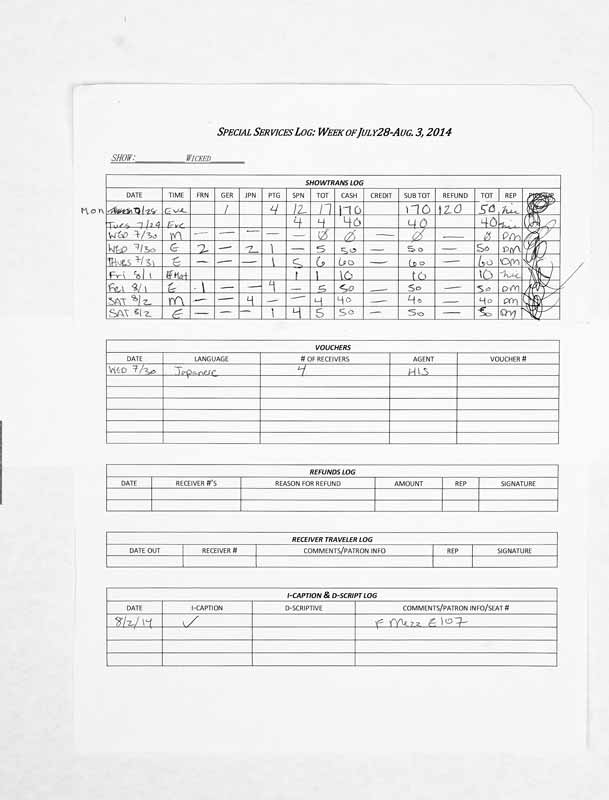 SPECIAL SERVICES LOG: WEEK OF JULY28-AUG. 3, 2014
SHOW: WICKED
SHOWTRANS LOG
DATE TIME FRN GER JPN PTG SPN TOT CASH CREDIT SUB TOT REFUND TOT REP
Mon 7/28 Eve 1 4 12 17 170 170 120 50
Tues 7/29 Eve 4 4 40 40 40
WED 7/30 M — — — — — Ø Ø — Ø — Ø DM
WED 7/30 E 2 — 2 1 — 5 50 — 50 — 50 DM
THURS 7/31 E — — — 1 5 6 60 — 60 — 60 DM
Fri 8/1 Mat 1 1 10 10 10
FRI 8/1 E 1 — — 4 — 5 50 — 50 — 50 DM
SAT 8/2 M — — 4 — — 4 40 — 40 — 40 DM
SAT 8/2 E — — — 1 4 5 50 — 50 — 50 DM
VOUCHERS
DATE LANGUAGE # OF RECEIVERS AGENT VOUCHER #
WED 7/30 Japanese 4 HIS
REFUNDS LOG
DATE RECEIVER #'S REASON FOR REFUND AMOUNT REP SIGNATURE
RECEIVER TRAVELER LOG
DATE OUT RECEIVER # COMMENTS/PATRON INFO REP SIGNATURE
I-CAPTION & D-SCRIPT LOG
DATE I-CAPTION D-SCRIPTIVE COMMENTS/PATRON INFO/SEAT #
8/2/14 ✓ F Mezz E107